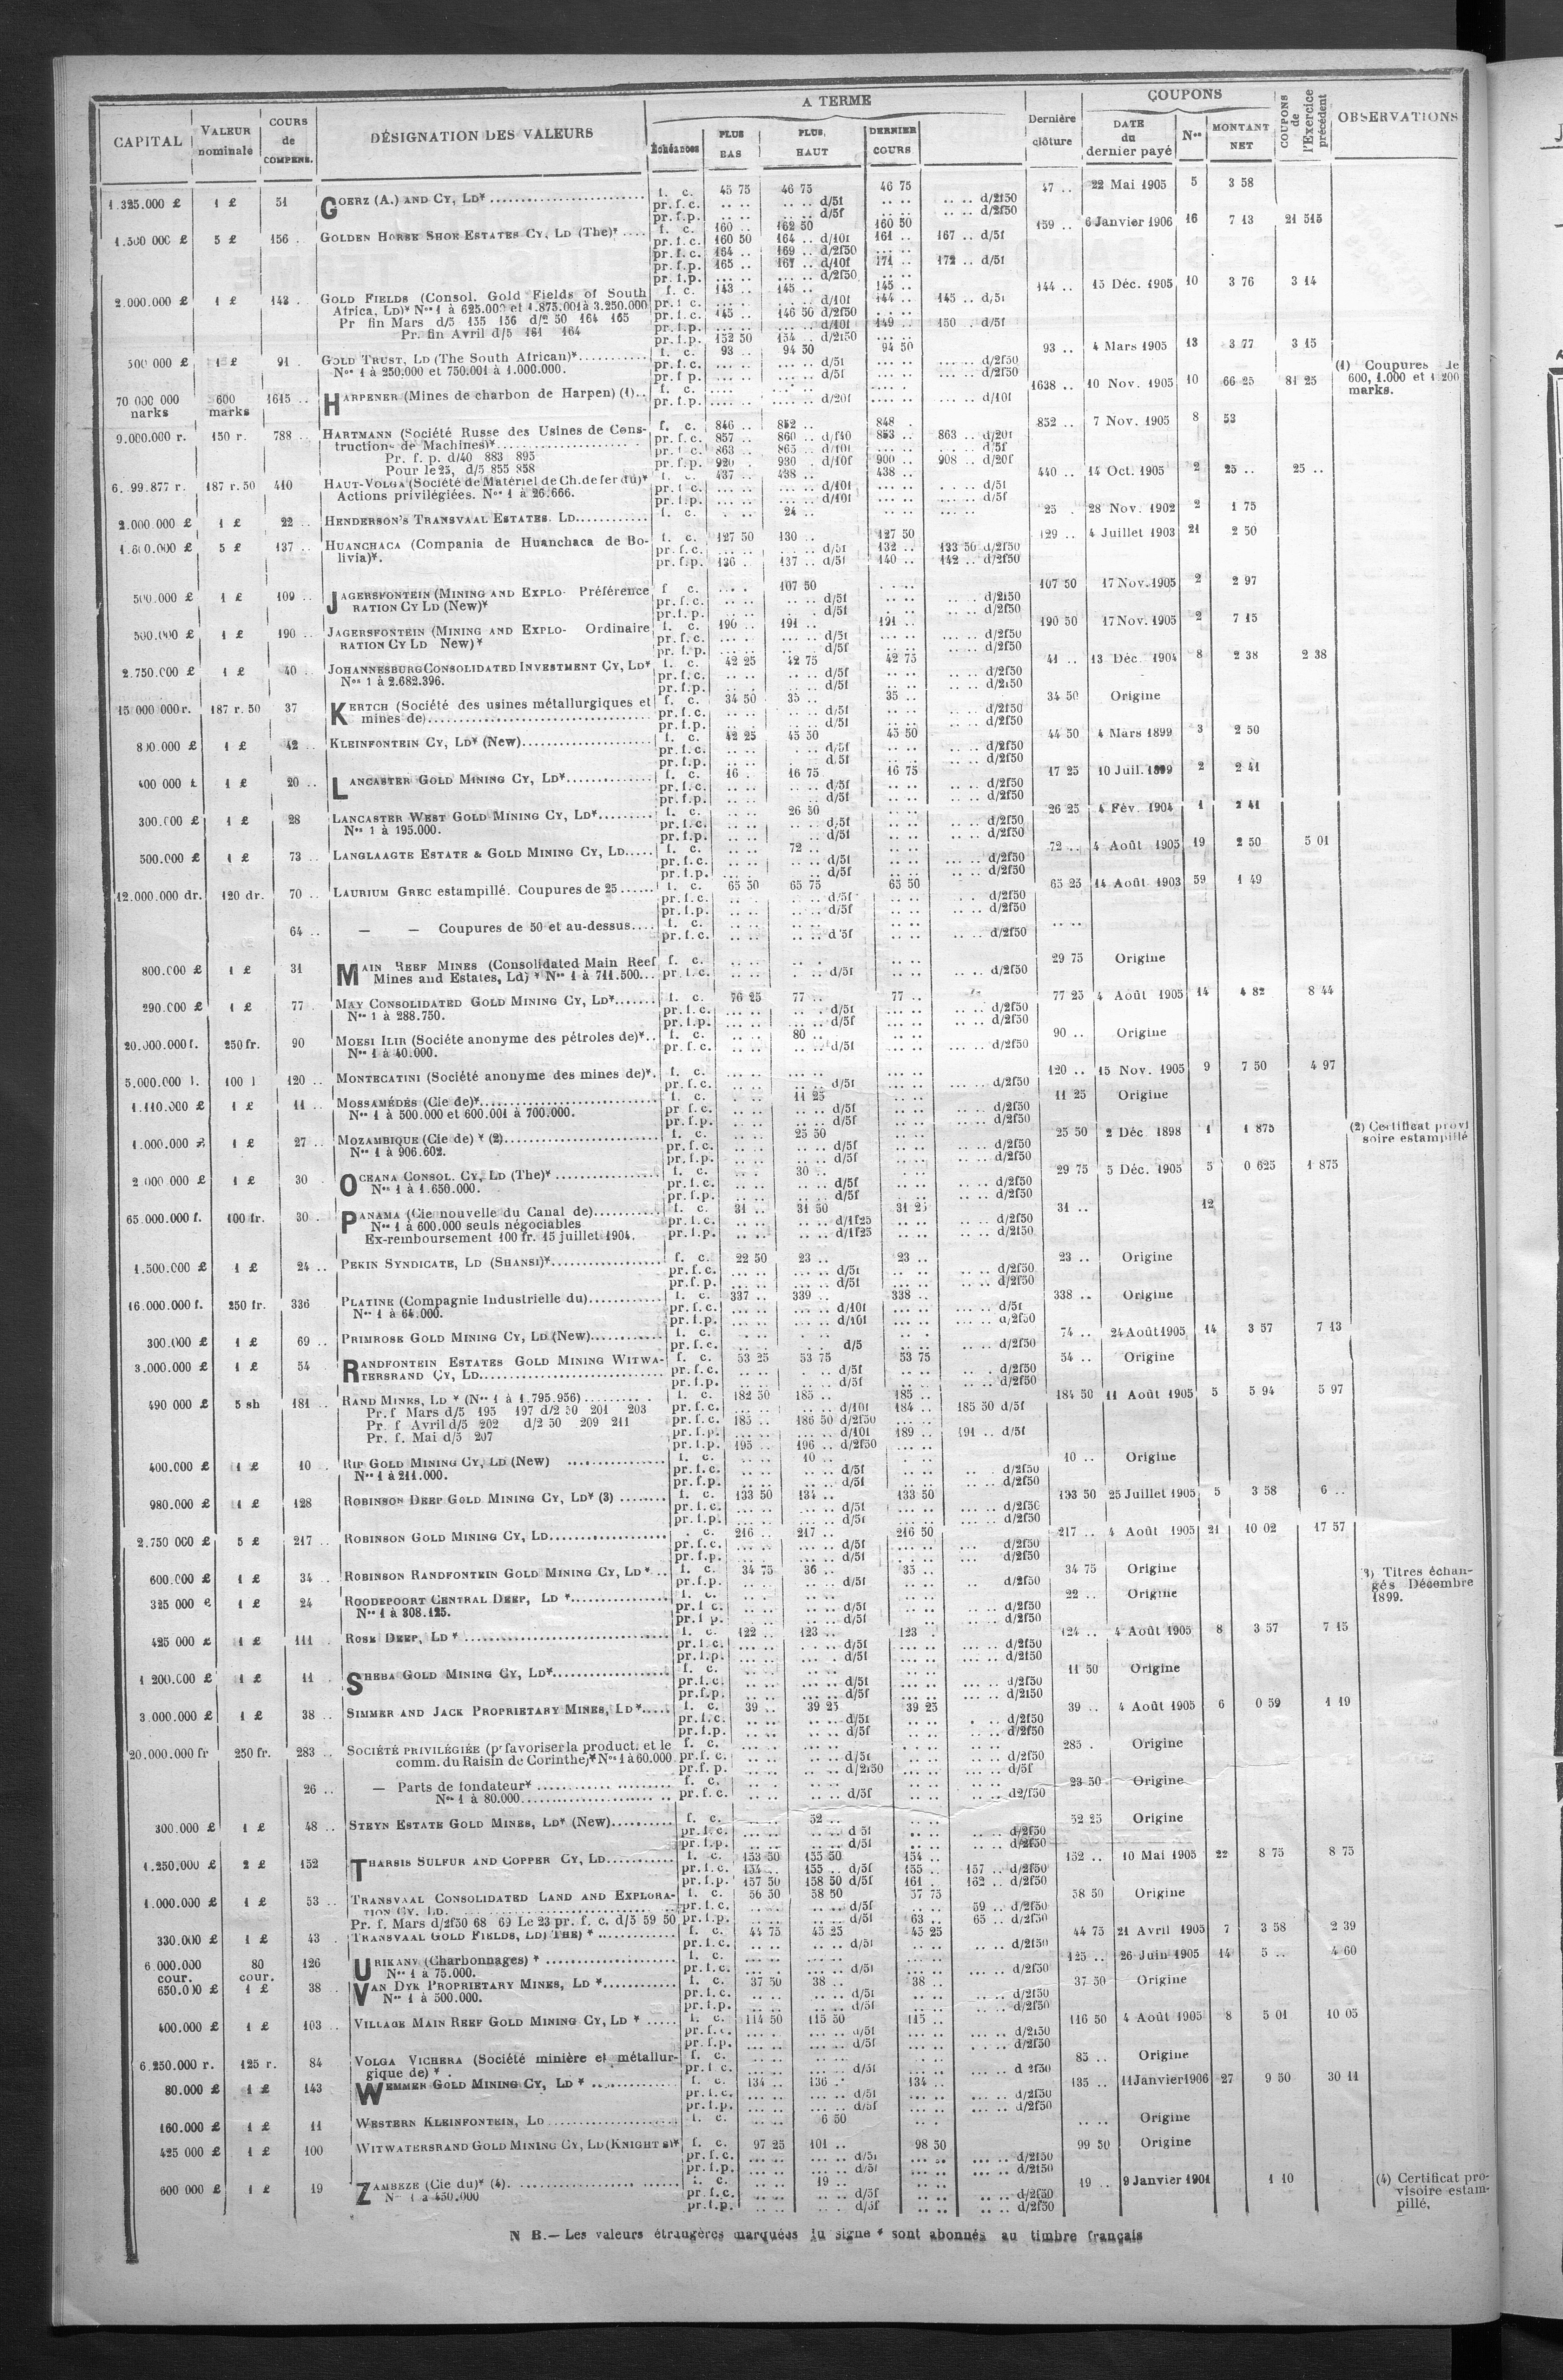 A TERME
COUPONS
CAPITAL
VALEUR nominale
COURS de COMPENS.
DÉSIGNATION DES VALEURS
Échéances
PLUS BAS
PLUS HAUT
DERNIER COURS
Dernière clôture
DATE du dernier payé
Nos
MONTANT NET
COUPONS de l'Exercice précédent
OBSERVATIONS
1.325.000 £ 1 £ 51 GOERZ (A.) AND CY, LD* f. c. 45 75 46 75 46 75 47 .. 22 Mai 1905 5 3 58
pr. f. c. .. .. .. .. d/5f .. .. .. .. d/2f50
pr. f. p. .. .. .. .. d/5f .. .. .. .. d/2f50
1.500 000 £ 5 £ 156 .. GOLDEN HORSE SHOE ESTATES CY, LD (The)* f. c. 160 .. 162 50 160 50 159 .. 6 Janvier 1906 16 7 13 21 515
pr. f. c. 160 50 164 .. d/10f 161 .. 167 .. d/5f
pr. f. c. 164 .. 169 .. d/2f50
pr. f. p. 165 .. 167 .. d/10f 171 .. 172 .. d/5f
pr. f. p. ... .. ... .. d/2f50
2.000.000 £ 1 £ 142 .. GOLD FIELDS (Consol. Gold Fields of South f. c. 143 .. 145 .. 145 .. 144 .. 15 Déc. 1905 10 3 76 3 14
Africa, LD)* Nos 1 à 625.000 et 1.875.001 à 3.250.000 pr. f. c. ... .. ... .. d/10f 144 .. 145 .. d/5f
Pr fin Mars d/5 155 156 d/2 50 164 165 pr. f. c. 145 .. 146 50 d/2f50
Pr. fin Avril d/5 161 164 pr. f. p. ... .. ... .. d/10f 149 .. 150 .. d/5f
pr. f. p. 152 50 154 .. d/2f50
500 000 £ 1 £ 91 .. GOLD TRUST, LD (The South African)* f. c. 93 .. 94 50 94 50 93 .. 4 Mars 1905 13 3 77 3 15
Nos 1 à 250.000 et 750.001 à 1.000.000. pr. f. c. d/5f d/2f50
pr. f. p. d/5f d/2f50
(1) Coupures de 600, 1.000 et 1 200 marks.
70 000 000 marks 600 marks 1615 .. HARPENER (Mines de charbon de Harpen) (1) f. c. 1638 .. 10 Nov. 1905 10 66 25 81 25
pr. f. p. d/20f d/10f
9.000.000 r. 150 r. 788 .. HARTMANN (Société Russe des Usines de Cons- f. c. 846 .. 852 .. 848 . 852 .. 7 Nov. 1905 8 53
tructions de Machines)* pr. f. c. 857 .. 860 .. d/f40 853 .. 863 .. d/20f
Pr. f. p. d/40 883 895 pr. f. c. 863 .. 865 .. d/10f d/5f
Pour le 25, d/5 855 858 pr. f. p. 920 . 930 . d/10f 900 .. 908 .. d/20f
187 r. 50 410 HAUT-VOLGA (Société de Matériel de Ch. de fer du)* f. c. 437 .. 438 .. 438 .. 440 .. 14 Oct. 1905 2 25 .. 25 ..
Actions privilégiées. Nos 1 à 26.666. pr. f. c. d/10f d/5f
pr. f. p. d/10f d/5f
2.000 000 £ 1 £ 22 .. HENDERSON'S TRANSVAAL ESTATES. LD f. c. 24 .. 25 . 28 Nov. 1902 2 1 75
1.600.000 £ 5 £ 137 .. HUANCHACA (Compania de Huanchaca de Bo- f. c. 127 50 130 .. 127 50 129 .. 4 Juillet 1903 21 2 50
livia)*. pr. f. c. d/5f 132 .. 133 50 d/2f50
pr. f. p. 136 .. 137 .. d/5f 140 .. 142 .. d/2f50
500.000 £ 1 £ 109 .. JAGERSFONTEIN (MINING AND EXPLO- Préférence f. c. 107 50 107 50 17 Nov. 1905 2 2 97
RATION CY LD (New)* pr. f. c. d/5f d/2f50
pr. f. p. d/5f d/2f50
500.000 £ 1 £ 190 .. JAGERSFONTEIN (MINING AND EXPLO- Ordinaire f. c. 190 .. 191 .. 191 .. 190 50 17 Nov. 1905 2 7 15
RATION CY LD New)* pr. f. c. d/5f d/2f50
pr. f. p. d/5f d/2f50
2.750.000 £ 1 £ 40 .. JOHANNESBURG CONSOLIDATED INVESTMENT CY, LD* f. c. 42 25 42 75 42 75 41 .. 13 Déc. 1904 8 2 38 2 38
Nos 1 à 2.682.396. pr. f. c. d/5f d/2f50
pr. f. p. d/5f d/2f50
15 000 000 r. 187 r. 50 37 KERTCH (Société des usines métallurgiques et f. c. 34 50 35 .. 35 .. 34 50 Origine
mines de) pr. f. c. d/5f d/2f50
pr. f. p. d/5f d/2f50
800.000 £ 1 £ 42 .. KLEINFONTEIN CY, LD* (New) f. c. 42 25 45 50 45 50 44 50 4 Mars 1899 3 2 50
pr. f. c. d/5f d/2f50
pr. f. p. d/5f d/2f50
400 000 £ 1 £ 20 .. LANCASTER GOLD MINING CY, LD* f. c. 16 . 16 75 16 75 17 25 10 Juil. 1899 2 2 41
pr. f. c. d/5f d/2f50
pr. f. p. d/5f d/2f50
300.000 £ 1 £ 28 LANCASTER WEST GOLD MINING CY, LD* f. c. 26 50 26 25 4 Fév. 1904 1 2 41
Nos 1 à 195.000. pr. f. c. d/5f d/2f50
pr. f. p. d/5f d/2f50
500.000 £ 1 £ 73 .. LANGLAAGTE ESTATE & GOLD MINING CY, LD f. c. 72 .. 72 .. 4 Août 1905 19 2 50 5 01
pr. f. c. d/5f d/2f50
pr. f. p. d/5f d/2f50
12.000.000 dr. 120 dr. 70 .. LAURIUM GREC estampillé. Coupures de 25 f. c. 65 50 65 75 65 50 65 25 14 Août 1903 59 1 49
pr. f. c. d/5f d/2f50
pr. f. p. d/5f d/2f50
64 .. — — Coupures de 50 et au-dessus f. c.
pr. f. c. d/5f d/2f50
800.000 £ 1 £ 31 MAIN REEF MINES (Consolidated Main Reef f. c. 29 75 Origine
Mines and Estates, Ld) * Nos 1 à 711.500 pr. f. c. d/5f d/2f50
290.000 £ 1 £ 77 . MAY CONSOLIDATED GOLD MINING CY, LD* f. c. 76 25 77 .. 77 .. 77 25 4 Août 1905 14 4 82 8 44
Nos 1 à 288.750. pr. f. c. d/5f d/2f50
pr. f. p. d/5f d/2f50
20.000.000 f. 250 fr. 90 MOESI ILIR (Société anonyme des pétroles de)* f. c. 80 .. 90 .. Origine
Nos 1 à 40.000. pr. f. c. d/5f d/2f50
5.000.000 l. 100 l 120 .. MONTECATINI (Société anonyme des mines de)*. f. c. 120 .. 15 Nov. 1905 9 7 50 4 97
pr. f. c. d/5f d/2f50
1.110.000 £ 1 £ 11 .. MOSSAMÉDÈS (Cie de)* f. c. 11 25 11 25 Origine
Nos 1 à 500.000 et 600.001 à 700.000. pr. f. c. d/5f d/2f50
pr. f. p. d/5f d/2f50
1.000.000 £ 1 £ 27 .. MOZAMBIQUE (Cie de) * (2) f. c. 25 50 25 50 2 Déc. 1898 1 1 875 (2) Certificat provi
Nos 1 à 906.602. pr. f. c. d/5f d/2f50 soire estampillé
pr. f. p. d/5f d/2f50
2 000 000 £ 1 £ 30 OCEANA CONSOL. CY, LD (The)* f. c. 30 .. 29 75 5 Déc. 1905 5 0 625 1 875
Nos 1 à 1.650.000. pr. f. c. d/5f d/2f50
pr. f. p. d/5f d/2f50
65.000.000 f. 100 fr. 30 . PANAMA (Cie nouvelle du Canal de) f. c. 31 .. 31 50 31 25 31 .. 12
Nos 1 à 600.000 seuls négociables pr. f. c. d/1f25 d/2f50
Ex-remboursement 100 fr. 15 juillet 1904. pr. f. p. d/1f25 d/2f50
1.500.000 £ 1 £ 24 .. PEKIN SYNDICATE, LD (SHANSI)* f. c. 22 50 23 .. 23 .. 23 .. Origine
pr. f. c. d/5f d/2f50
pr. f. p. d/5f d/2f50
16.000.000 f. 250 fr. 336 PLATINE (Compagnie Industrielle du) f. c. 337 .. 339 .. 338 .. 338 .. Origine
Nos 1 à 64.000. pr. f. c. d/10f d/5f
pr. f. p. d/10f d/2f50
300.000 £ 1 £ 69 .. PRIMROSE GOLD MINING CY, LD (New) f. c. 74 .. 24 Août 1905 14 3 57 7 13
pr. f. c. d/5 d/2f50
3.000.000 £ 1 £ 54 RANDFONTEIN ESTATES GOLD MINING WITWA- f. c. 53 25 53 75 53 75 54 .. Origine
TERSRAND CY, LD pr. f. c. d/5f d/2f50
pr. f. p. d/5f d/2f50
490 000 £ 5 sh 181 .. RAND MINES, LD * (Nos 1 à 1.795.956) f. c. 182 50 185 .. 185 .. 184 50 11 Août 1905 5 5 94 5 97
Pr. f Mars d/5 195 197 d/2 50 201 203 pr. f. c. d/10f 184 .. 185 50 d/5f
Pr. f Avril d/5 202 d/2 50 209 211 pr. f. c. 185 .. 186 50 d/2f50
Pr. f. Mai d/5 207 pr. f. p. d/10f 189 .. 191 .. d/5f
pr. f. p. 195 .. 196 .. d/2f50
400.000 £ 1 £ 10 .. RIP GOLD MINING CY, LD (New) f. c. 10 .. 10 .. Origine
Nos 1 à 211.000. pr. f. c. d/5f d/2f50
pr. f. p. d/5f d/2f50
980.000 £ 1 £ 128 ROBINSON DEEP GOLD MINING CY, LD* (3) f. c. 133 50 134 .. 133 50 133 50 25 Juillet 1905 5 3 58 6 ..
pr. f. c. d/5f d/2f50
pr. f. p. d/5f d/2f50
2.750 000 £ 5 £ 217 .. ROBINSON GOLD MINING CY, LD . c. 216 .. 217 .. 216 50 217 .. 4 Août 1905 21 10 02 17 57
pr. f. c. d/5f d/2f50
pr. f. p. d/5f d/2f50
600.000 £ 1 £ 34 .. ROBINSON RANDFONTEIN GOLD MINING CY, LD * f. c. 34 75 36 .. 35 .. 34 75 Origine
pr. f. p. d/5f d/2f50
3) Titres échangés Décembre 1899.
325 000 £ 1 £ 24 ROODEPOORT CENTRAL DEEP, LD * f. c. 22 .. Origine
Nos 1 à 308.125. pr. f. c. d/5f d/2f50
pr. f. p. d/5f d/2f50
425 000 £ 1 £ 111 ROSE DEEP, LD * f. c. 122 .. 123 .. 123 . 124 .. 4 Août 1905 8 3 57 7 15
pr. f. c. d/5f d/2f50
pr. f. p. d/5f d/2f50
1 200.000 £ 1 £ 11 . SHEBA GOLD MINING CY, LD* f. c. 11 50 Origine
pr. f. c. d/5f d/2f50
pr. f. p. d/5f d/2f50
3.000.000 £ 1 £ 38 .. SIMMER AND JACK PROPRIETARY MINES, LD* f. c. 39 .. 39 25 39 25 39 .. 4 Août 1905 6 0 59 1 19
pr. f. c. d/5f d/2f50
pr. f. p. d/5f d/2f50
20.000.000 fr 250 fr. 283 .. SOCIÉTÉ PRIVILÉGIÉE (pr favoriser la product. et le f. c. 285 . Origine
comm. du Raisin de Corinthe)* Nos 1 à 60.000 pr. f. c. d/5f d/2f50
pr. f. p. d/2f50 d/5f
26 .. — Parts de fondateur* f. c. 23 50 Origine
Nos 1 à 80.000 pr. f. c. d/5f d2/f50
300.000 £ 1 £ 48 .. STEYN ESTATE GOLD MINES, LD* (New) f. c. 52 .. 52 25 Origine
pr. f. c. d 5f d/2f50
pr. f. p. d/5f d/2f50
1.250.000 £ 2 £ 152 THARSIS SULFUR AND COPPER CY, LD f. c. 153 50 155 50 154 .. 152 .. 10 Mai 1905 22 8 75 8 75
pr. f. c. 154 .. 155 .. d/5f 155 .. 157 .. d/2f50
pr. f. p. 157 50 158 50 d/5f 161 . 162 .. d/2f50
1.000.000 £ 1 £ 53 .. TRANSVAAL CONSOLIDATED LAND AND EXPLORA- f. c. 56 50 58 50 57 75 58 50 Origine
TION CY, LD. pr. f. c. d/5f 59 .. d/2f50
Pr. f. Mars d/2f50 68 69 Le 23 pr. f. c. d/5 59 50 pr. f. p. d/5f 63 .. 65 .. d/2f50
330.000 £ 1 £ 43 . TRANSVAAL GOLD FIELDS, LD) THE) * f. c. 44 75 45 25 45 25 44 75 21 Avril 1905 7 3 58 2 39
pr. f. c. d/5f d/2f50
6.000.000 cour. 80 cour. 126 URIKANY (Charbonnages) * f. c. 125 .. 26 Juin 1905 14 5 .. 4 60
Nos 1 à 75.000. pr. f. c. d/5f d/2f50
650.000 £ 1 £ 38 . VAN DYK PROPRIETARY MINES, LD * f. c. 37 50 38 .. 38 .. 37 50 Origine
Nos 1 à 500.000. pr. f. c. d/5f d/2f50
pr. f. p. d/5f d/2f50
400.000 £ 1 £ 103 .. VILLAGE MAIN REEF GOLD MINING CY, LD * f. c. 114 50 115 50 115 .. 116 50 4 Août 1905 8 5 01 10 05
pr. f. c. d/5f d/2f50
pr. f. p. d/5f d/2f50
6.250.000 r. 125 r. 84 VOLGA VICHERA (Société minière et métallur- f. c. 85 .. Origine
gique de) * . pr. f. c. d/5f d 2f50
80.000 £ 1 £ 143 WEMMER GOLD MINING CY, LD * f. c. 134 .. 136 .. 134 .. 135 .. 11 Janvier 1906 27 9 50 30 11
pr. f. c. d/5f d/2f50
pr. f. p. d/5f d/2f50
160.000 £ 1 £ 11 WESTERN KLEINFONTEIN, LD f. c. 6 50 Origine
425 000 £ 1 £ 100 WITWATERSRAND GOLD MINING CY, LD (KNIGHT S)* f. c. 97 25 101 .. 98 50 99 50 Origine
pr. f. c. d/5f d/2f50
pr. f. p. d/5f d/2f50
600 000 £ 1 £ 19 ZAMBEZE (Cie du)* (4). f. c. 19 .. 19 .. 9 Janvier 1901 1 10 (4) Certificat pro-
Nos 1 à 450.000 pr. f. c. d/5f d/2f50 visoire estam-
pr. f. p. d/5f d/2f50 pillé.
N B.— Les valeurs étrangères marquées du signe * sont abonnés au timbre français